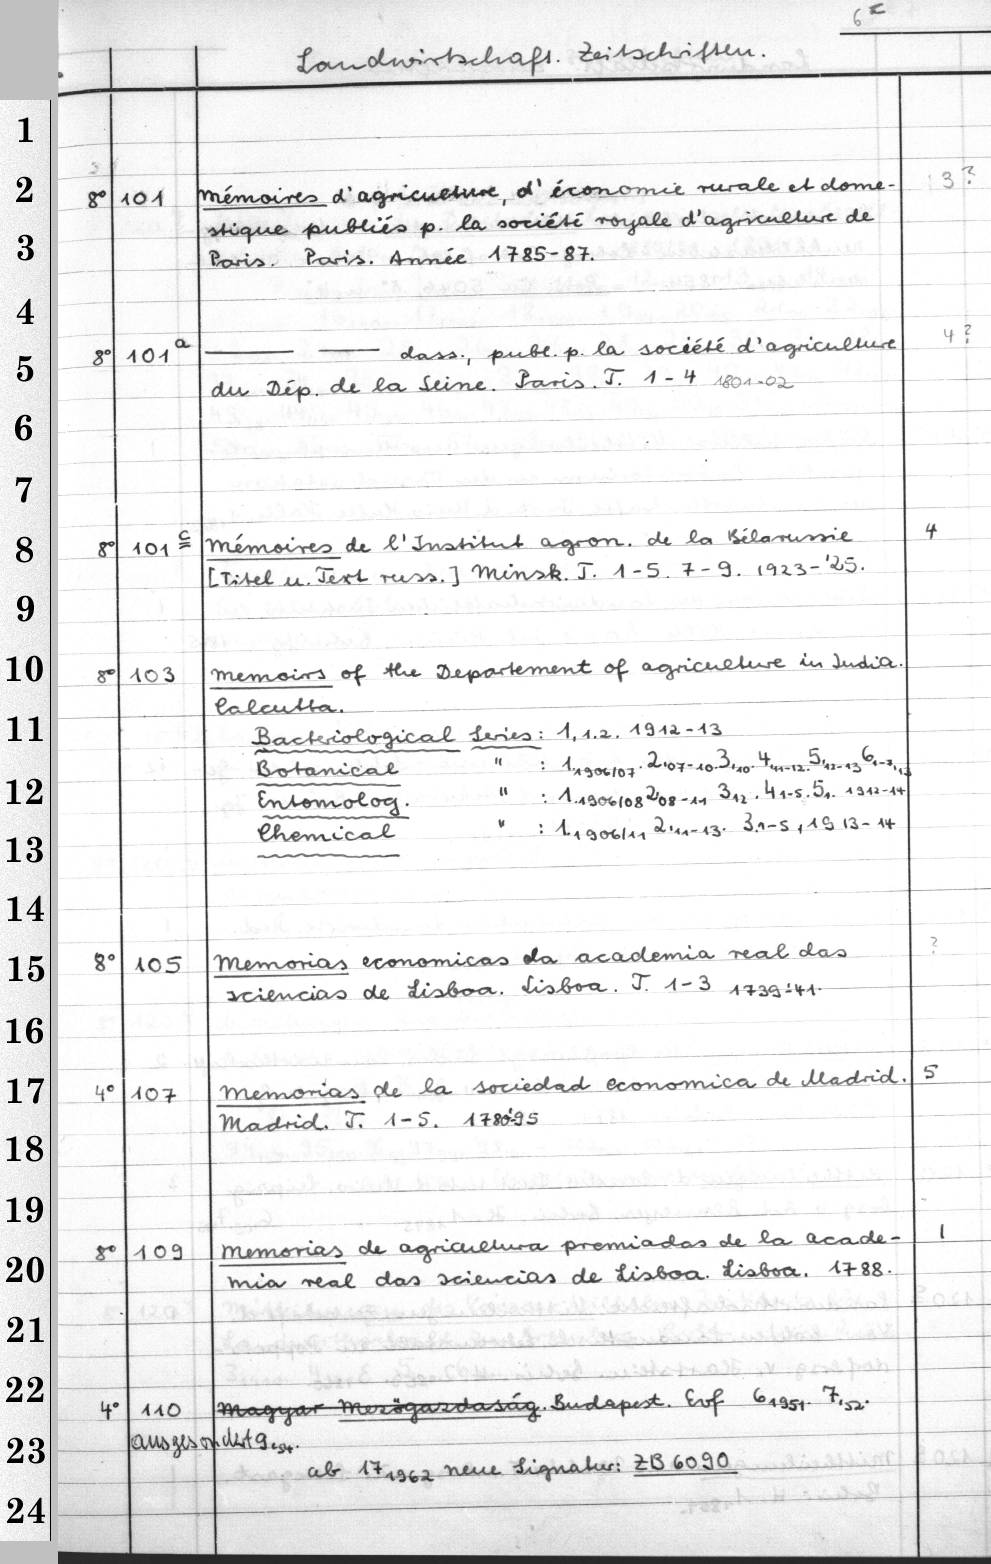 6ᶜ
Landwirtschaft. Zeitschriften.
1
2
3
4
5
6
7
8
9
10
11
12
13
14
15
16
17
18
19
20
21
22
23
24
8° 101 Mémoires d'agriculture, d'économie rurale et dome- 3?
stique publiés p. la société royale d'agriculture de
Paris. Paris. Année 1785-87.
8° 101ᵃ ——— ——— dass., publ. p. la société d'agriculture 4?
du Dép. de la Seine. Paris. T. 1-4 1801-02
8° 101ᶜ Mémoires de l'Institut agron. de la Bélarussie 4
[Titel u. Text russ.] Minsk. T. 1-5. 7-9. 1923-'25.
8° 103 Memoirs of the Departement of agriculture in India.
Calcutta.
Bacteriological Series: 1,1.2. 1912-13
Botanical " : 1,1906/07. 2,07-10. 3,10. 4,11-12. 5,12-13 6,1-2,13
Entomolog. " : 1.1906/08 2,08-11 3,12. 4,1-5. 5,1. 1912-14
Chemical " : 1,1906/11 2,11-13. 3,1-5, 1913-14
8° 105 Memorias economicas da academia real das ?
sciencias de Lisboa. Lisboa. T. 1-3 1739-'41.
4° 107 Memorias de la sociedad economica de Madrid. 5
Madrid. T. 1-5. 1780-'95
8° 109 Memorias de agricultura premiadas de la acade- 1
mia real das sciencias de Lisboa. Lisboa. 1788.
4° 110 Magyar Mezögazdaság. Budapest. Evf 6,1951. 7,52.
ausgesondert
ab 17,1962 neue Signatur: ZB 6090